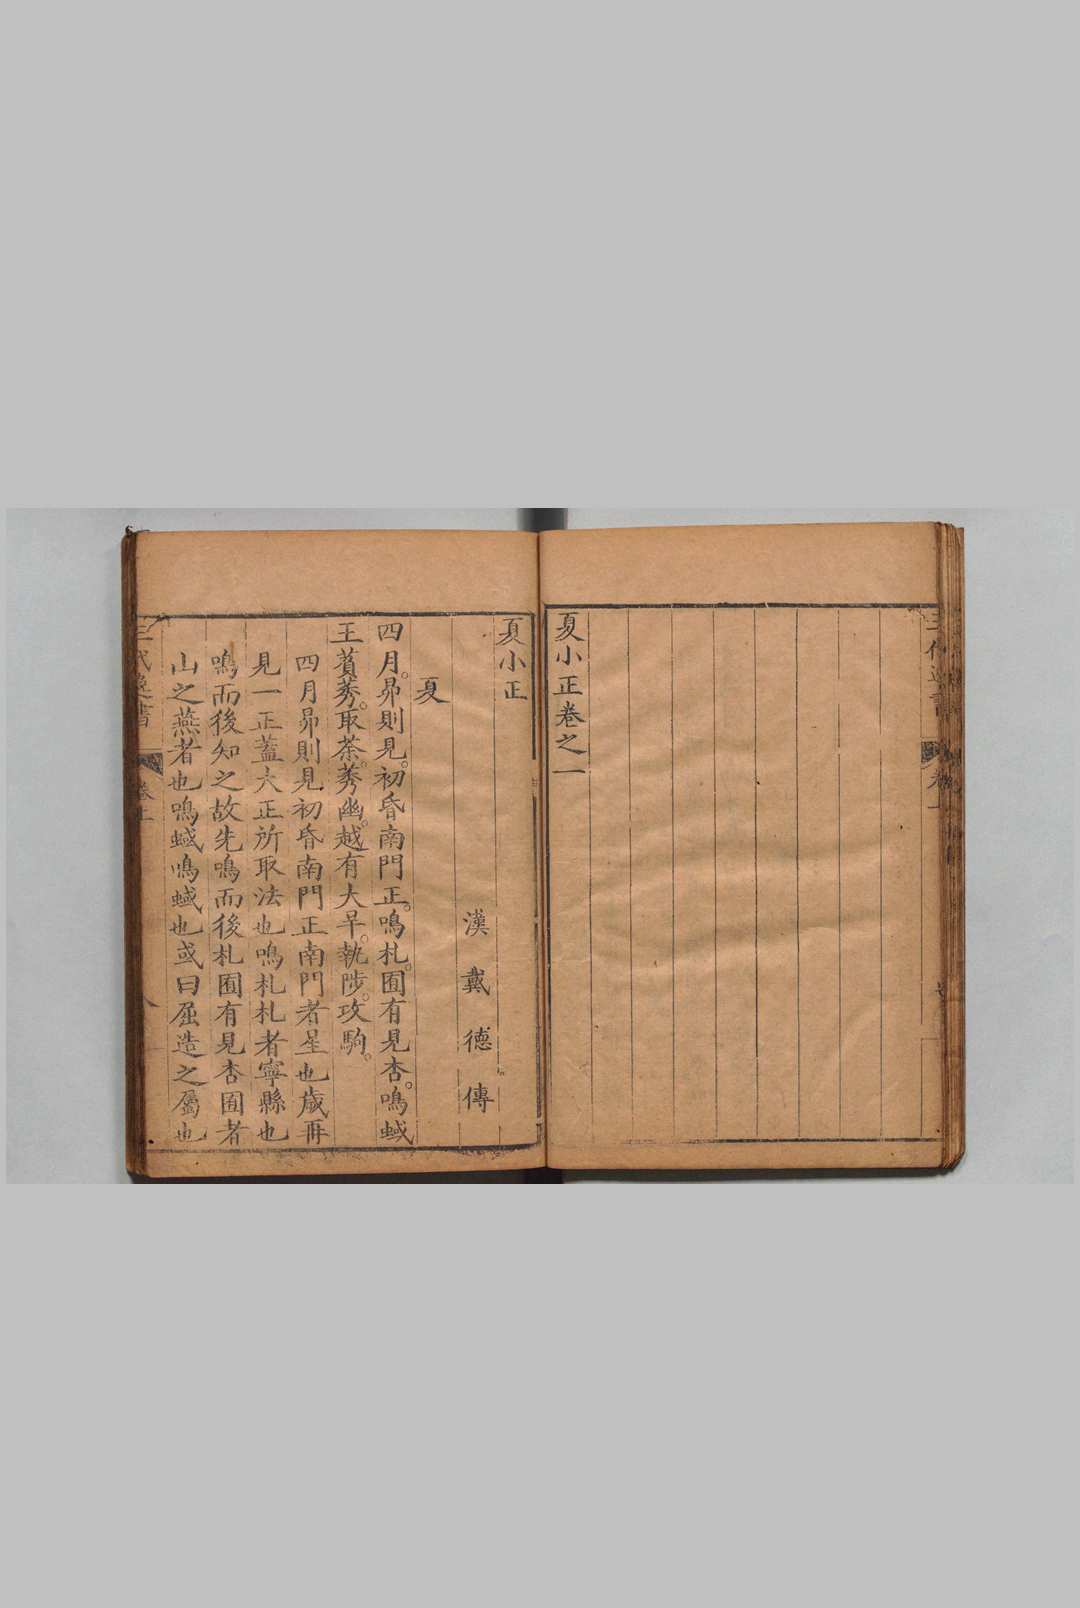 夏小正卷之一
夏小正
漢戴德傳
夏
四月。昴則見。初昏南門正。鳴札。囿有見杏。鳴蜮
王萯莠。取荼。莠幽。越有大旱。執陟。攻駒。
四月昴則見初昏南門正南門者星也歲再
見一正蓋大正所取法也鳴札札者寧縣也
鳴而後知之故先鳴而後札囿有見杏囿者
山之燕者也鳴蜮鳴蜮也或曰屈造之屬也
三代逸書
卷上